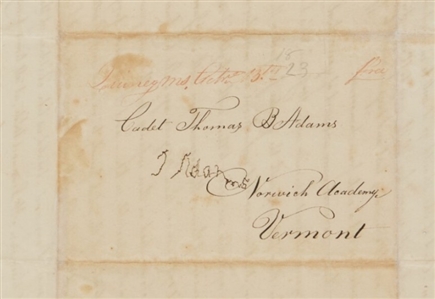 Quincy Ms. Octr. 13th 23 free
Cadet Thomas B Adams
J Adams
Norwich Academy
Vermont